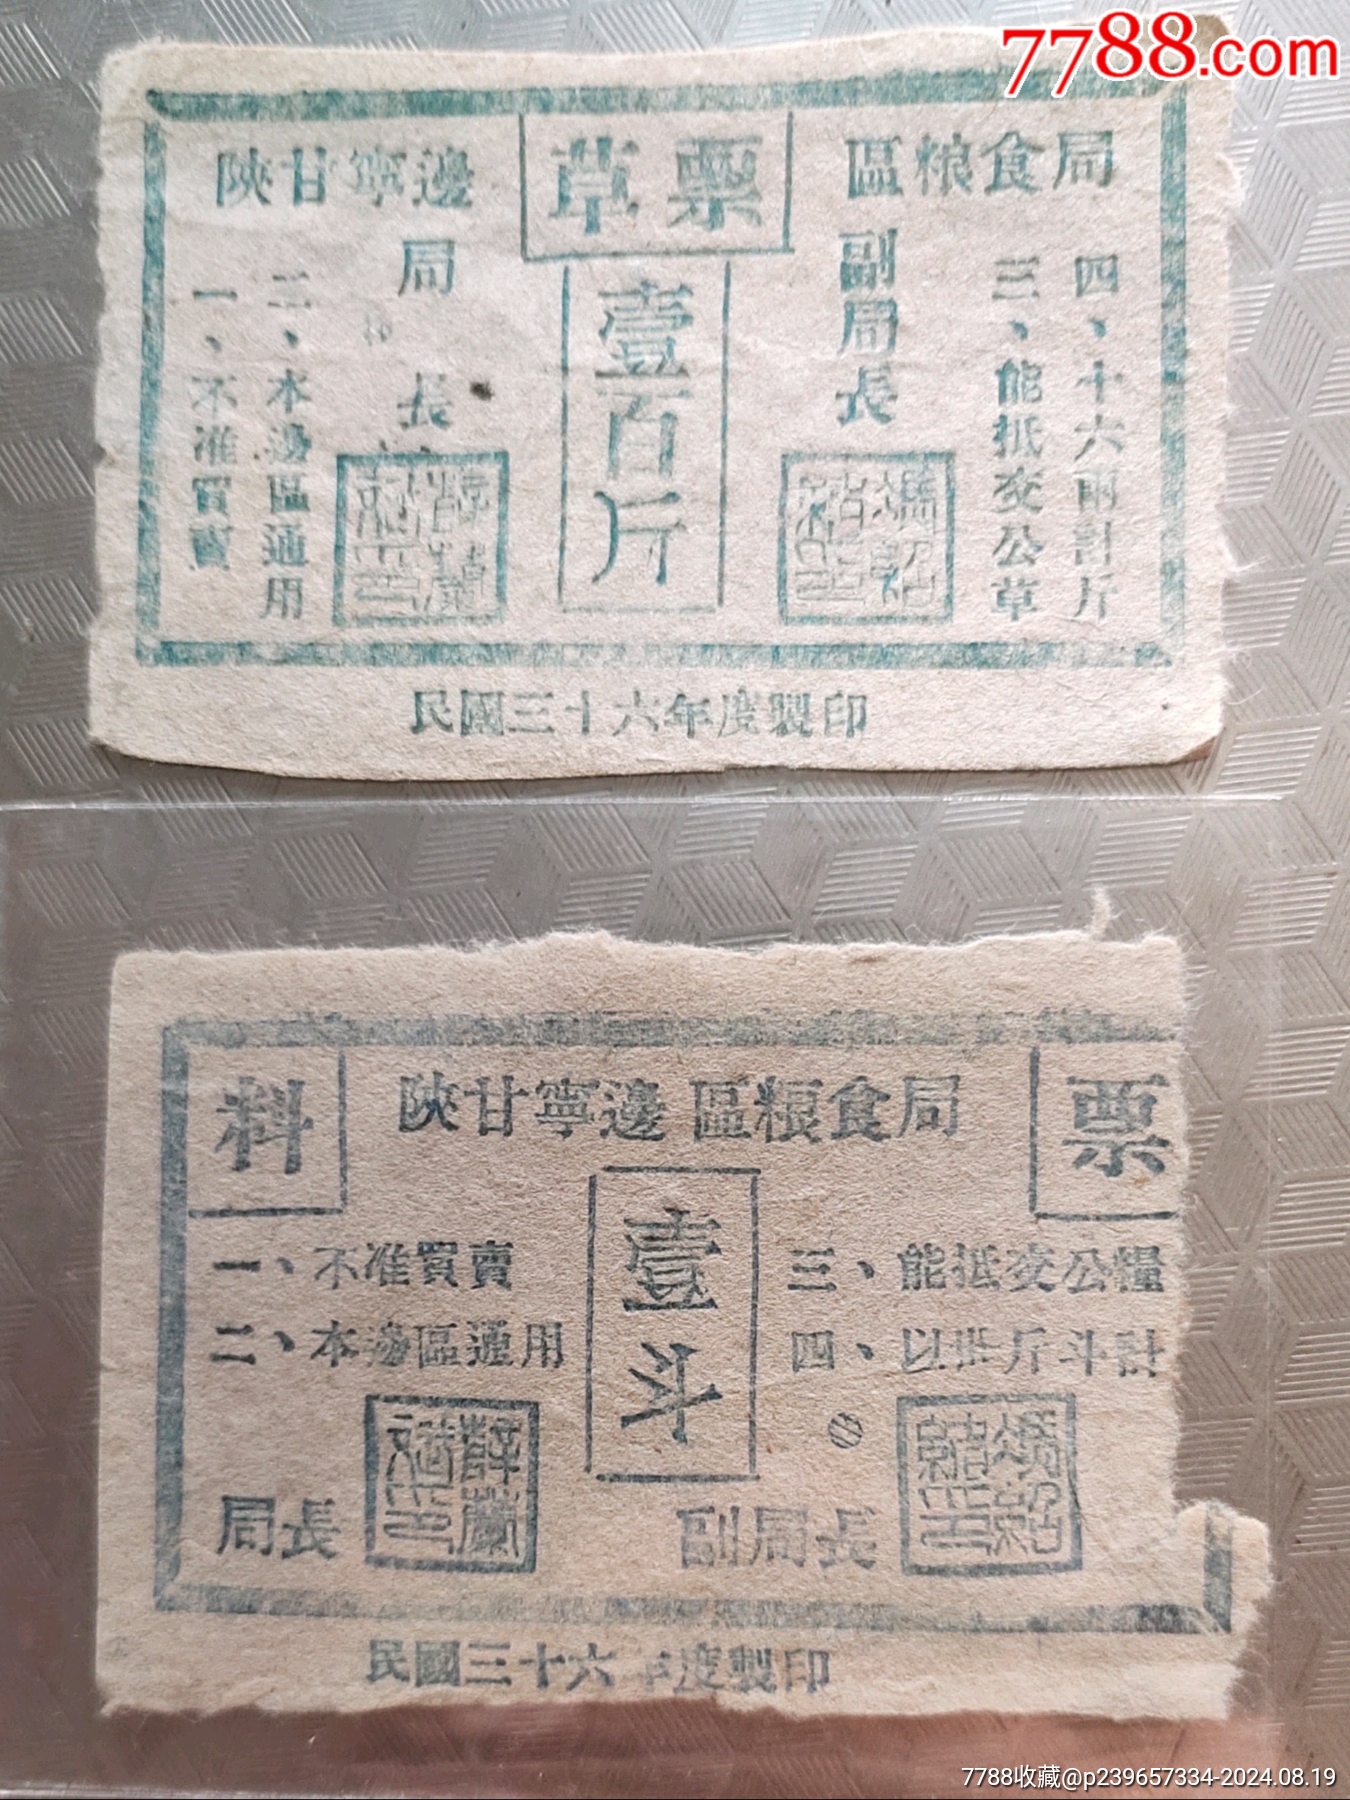 7788.com
陝甘寧邊
草票
區粮食局
一、不准買賣
二、本邊區通用
局長
壹百斤
副局長
三、能抵交公草
四、十六兩計斤
民國三十六年度製印
料
陝甘寧邊區粮食局
票
一、不准買賣
二、本邊區通用
壹斗
三、能抵交公糧
四、以卅斤斗計
局長
副局長
民國三十六年度製印
7788收藏@p239657334-2024.08.19